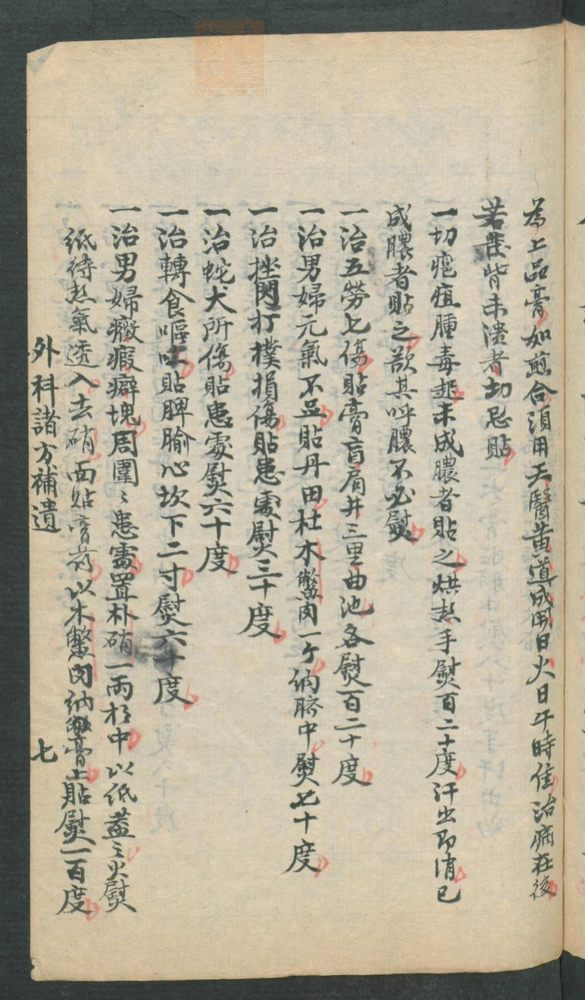 為上品膏如煎合須用天醫黄道成開日火日午時隹治病在後
若發背未潰者切忌貼
一切瘡疽腫毒起未成膿者貼之烘熱手熨百二十度汗出即消已
成膿者貼之欲其呼膿不必熨
一治五劳七傷貼膏肓肩井三里曲池各熨百二十度
一治男婦元氣不足貼丹田杜木鱉肉一ケ納臍中熨七十度
一治挫閃打撲損傷貼患處熨三十度
一治蛇犬所傷貼患處熨六十度
一治轉食嘔吐貼脾腧心坎下二寸熨六十度
一治男婦癥瘕癖塊周圍〻患處置朴硝一兩於中以紙蓋之火熨
紙待熱氣透入去硝面貼膏前以木鱉肉納膏上貼熨一百度
外科諸方補遺
七